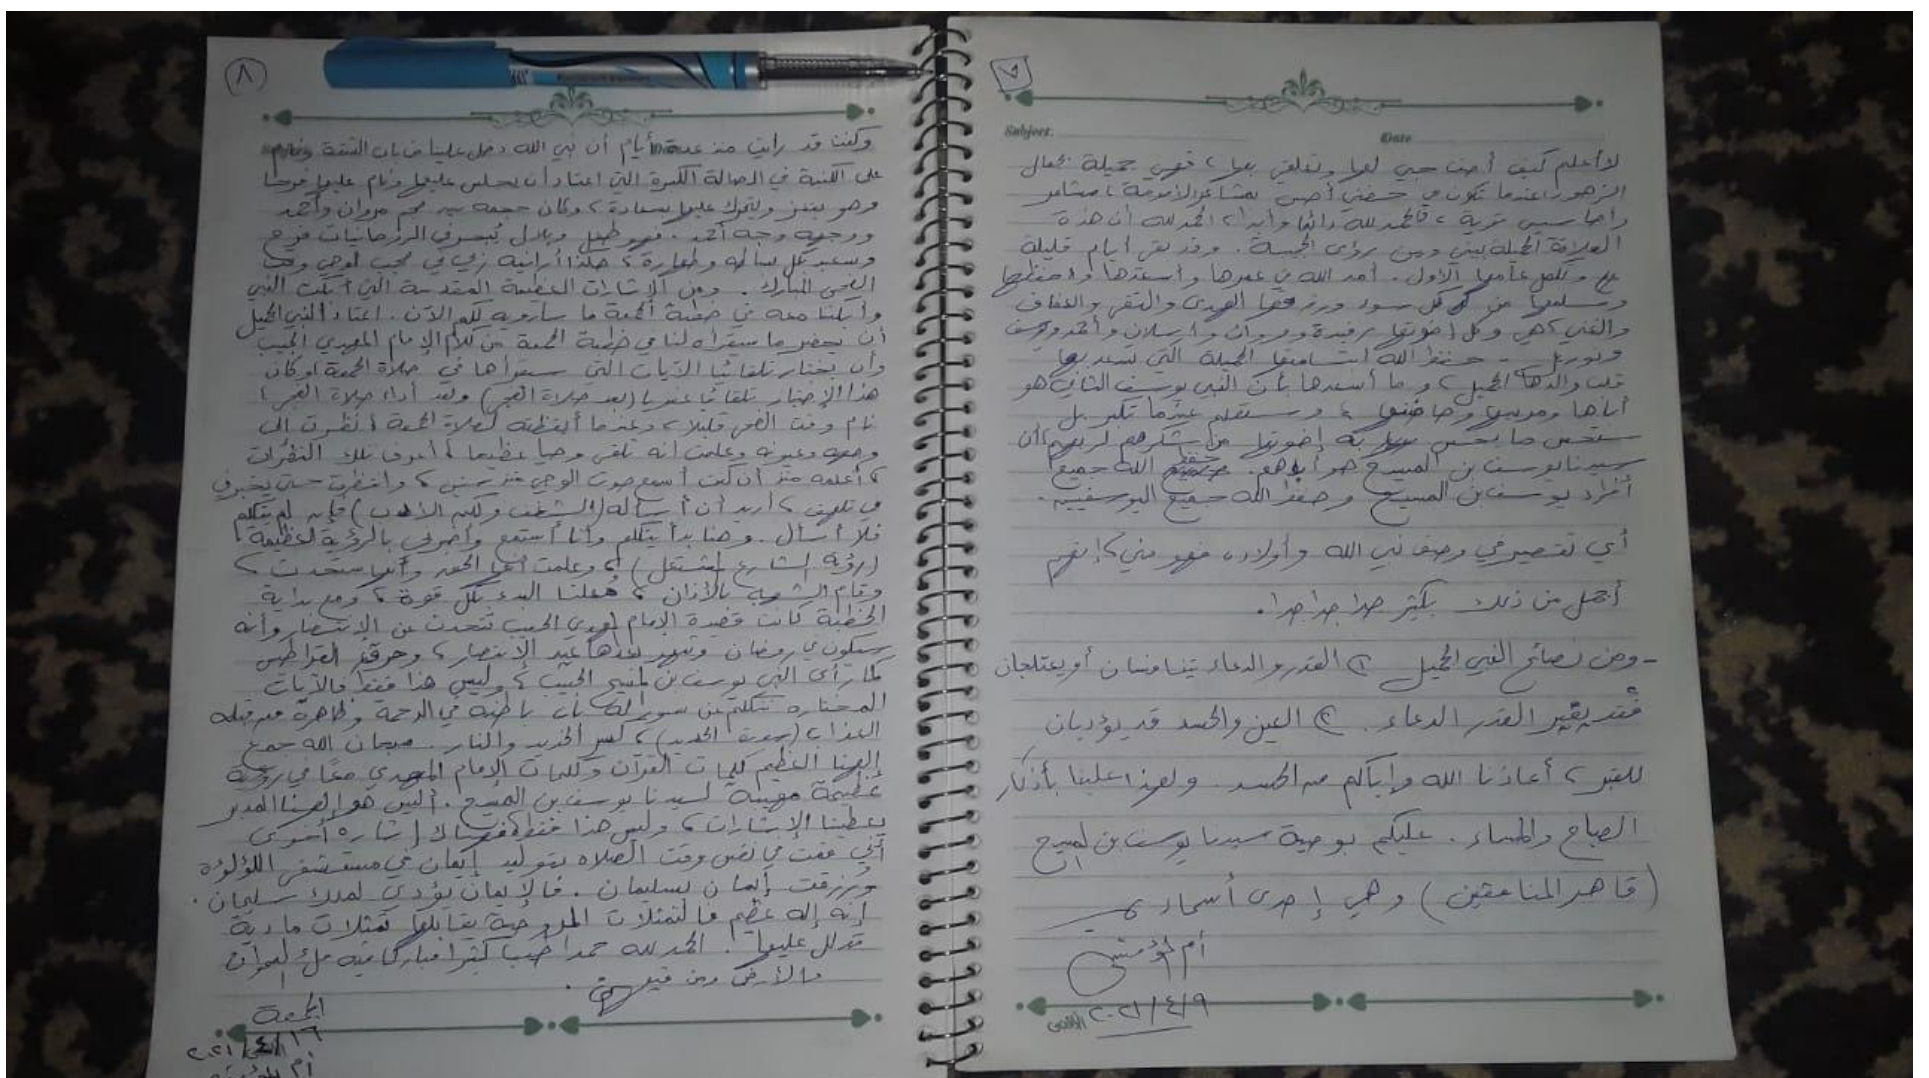 ٧
Subject:
Date
لا أعلم كيف أصف حبي لها وتعلقي بها، فهي جميلة بجمال
الزهور، عندما تكون في حضني أحس بمشاعر الأمومة، مشاعر
وأحاسيس، فالحمد لله دائما وأبدا، الحمد لله أن هذه
العلاقة الجميلة بيني وبين رؤى الحبيبة. وقد بقي أيام قليلة
وتكمل عامها الأول. أمد الله في عمرها وأسعدها وحفظها
وسلمها من كل سوء ورزقها الهدى والتقى والعفاف
والغنى، هي وكل إخوتها رفيدة ومروان وأرسلان وأحمد ويوسف
حفظ الله ابتسامتها الجميلة التي يسعد بها
قلب والدها الجميل، وما أسعدها بأن النبي يوسف الثاني هو
أباها ومربيها، وستعلم عندما تكبر بل
ستحس ما يحس به إخوتها من شكرهم لربهم أن
سيدنا يوسف بن المسيح هو أبوهم. حفظ الله جميع
أفراد يوسف بن المسيح وحفظ الله جميع اليوسفيين.
أي تقصير في وصف نبي الله وأولاده فهو مني، إنهم
أجمل من ذلك بكثير جدا جدا جدا.
- ومن نصائح النبي الجميل ١ القدر والدعاء يتنافسان أو يعتلجان
فقد يغير القدر الدعاء. ٢ العين والحسد قد يؤديان
للقبر، أعاذنا الله وإياكم من الحسد. ولهذا علينا بأذكار
الصباح والمساء. عليكم بوصية سيدنا يوسف بن المسيح
(قاهر المنافقين) وهي إحدى أسماءه
أم المؤمنين
٢٠٢١/٤/٩
٨
وكنت قد رأيت منذ عدة أيام أن نبي الله دخل علينا من باب الشقة ونام
على الكنبة في الصالة الكبيرة التي اعتاد أن يجلس عليها ونام عليها فرحا
وهو يقفز ويتحرك عليها بسعادة، وكان حجمه بين حجم مروان وأحمد
ووجهه وجه أحمد. فهو طفل
وسعيد بكل بسالة وطهارة، هكذا أرانيه ربي
المبارك. ومن الإشارات العظيمة المقدسة التي أبكت النبي
وأبكتنا معه في خطبة الجمعة ما سأرويه لكم الآن. اعتاد النبي الجميل
أن يحضر ما سيقرأه لنا في خطبة الجمعة من كلام الإمام المهدي الحبيب
وأن يختار تلقائيا الآيات التي سيقرأها في صلاة الجمعة وكان
هذا الإختيار تلقائيا (بعد صلاة الفجر) وبعد أداء صلاة الفجر
نام وقت الضحى قليلا، وعندما أيقظته لصلاة الجمعة نظرت إلى
وجهه وعيونه وعلمت أنه تلقى وحيا عظيما، أعرف تلك النظرات
، أعلمه منذ أن كنت أسمع صوت الوحي منذ سنين، وانتظرت حتى يخبرني
في تلهف، أريد أن أسأله (الشغف ولكنه الأدب) فإن لم يتكلم
فلا أسأل. وهنا بدأ يتكلم وأنا أستمع وأخبرني بالرؤية العظيمة
(رؤية الشارع المشتعل)، وعلمت أنها الحق وأنها ستحدث،
بالأذان، البدء بكل قوة، ومع بداية
الخطبة كانت قصيدة الإمام المهدي الحبيب تتحدث عن الإنتصار وأنه
سيكون في رمضان وشهد بعدها عيد الإنتصار، وحرقة القراطيس
كما رأى النبي يوسف بن المسيح الحبيب، وليس هذا فقط فالآيات
المختارة تتكلم عن سور له باب باطنه فيه الرحمة وظاهره من قبله
العذاب (سورة الحديد)، الحديد والنار. سبحان الله جمع
إلهنا العظيم كلمات القرآن وكلمات الإمام المهدي معا في رؤية
عظيمة مهيبة لسيدنا يوسف بن المسيح. أليس هو إلهنا القدير
يعطينا الإشارات، وليس هذا فقط فهناك إشارة أخرى
أني قمت في نفس وقت الصلاة بتوليد إيمان في مستشفى اللؤلؤة
ورزقت إيمان بسليمان. فالإيمان يؤدي لملك سليمان.
إنه إله عظيم فالتمثلات الروحية يقابلها تمثلات مادية
تدلل عليها. الحمد لله حمدا طيبا كثيرا مباركا فيه ملئ السموات
والأرض ومن فيهن.
الجمعة
٢٠٢١/٤/١٦